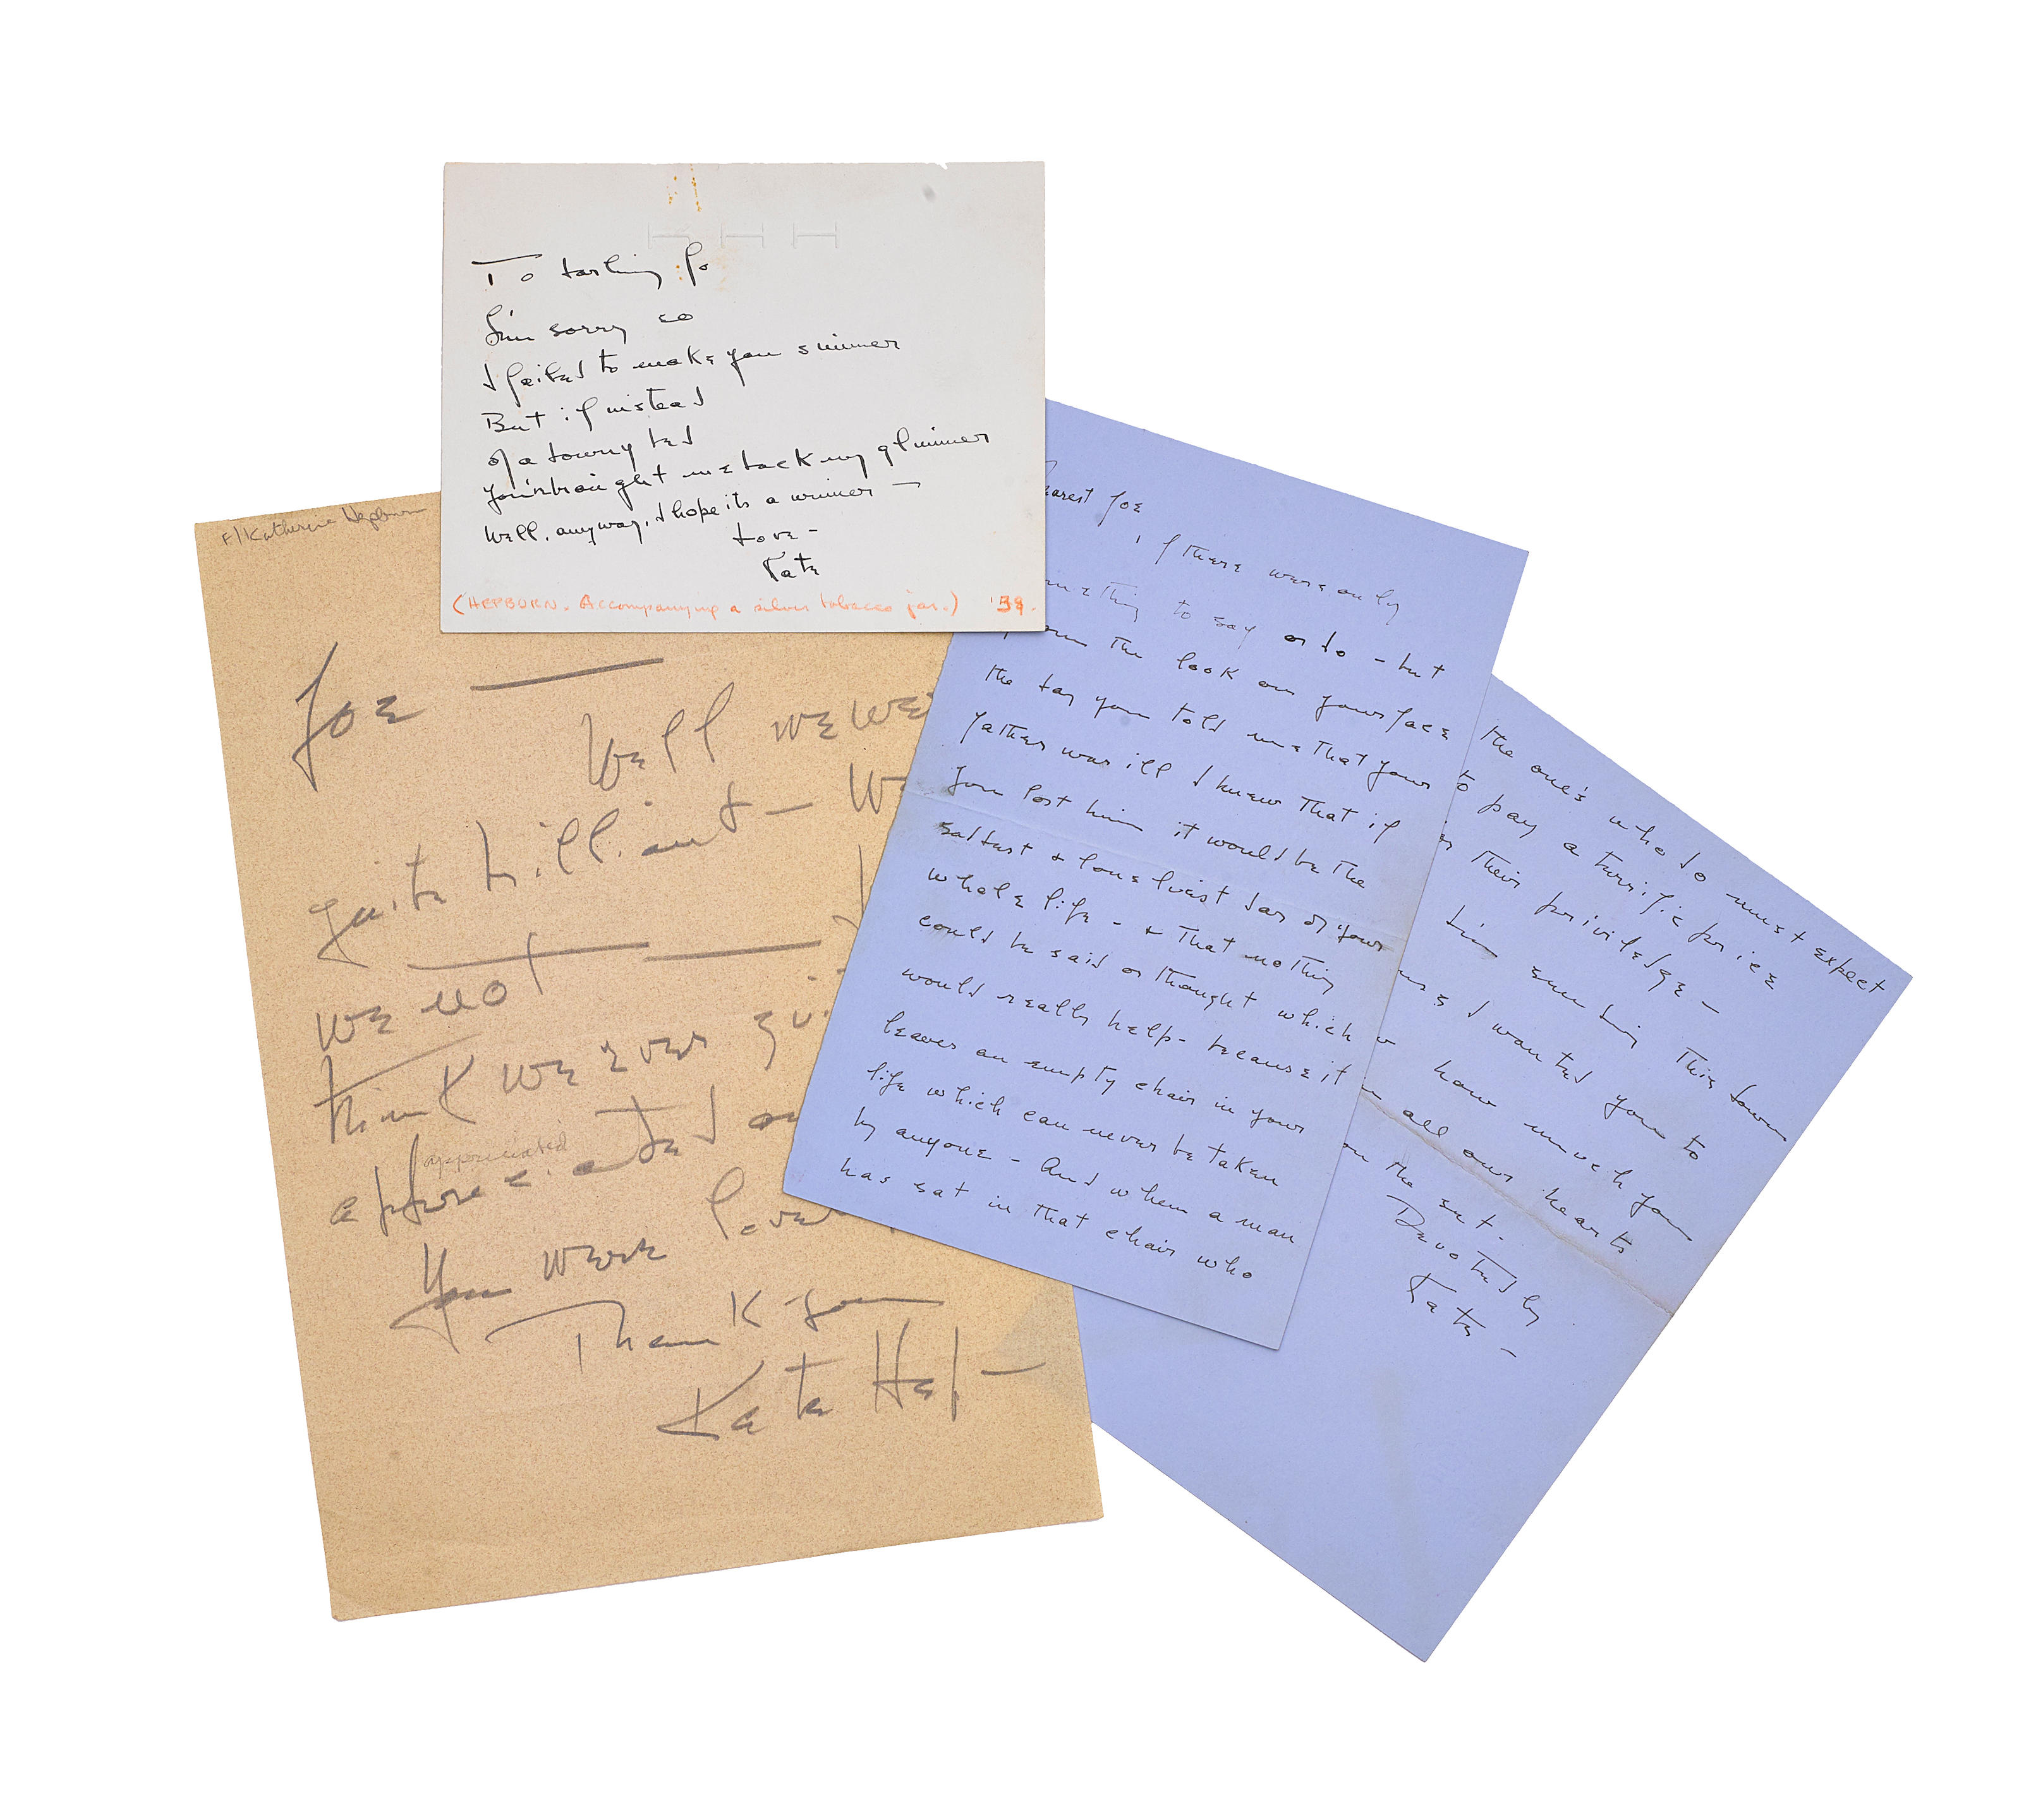 To darling Jo
I'm sorry so
I failed to make you simmer
But if instead
of a downy bed
You'r brought me back my glimmer
Well, anyway, I hope its a winner —
Love —
Kate
(HEPBURN. Accompanying a silver tobacco jar.) '39.
F/Katherine Hepburn
Joe —
Well we we
quite brilliant — W
we not
think we ever gi
appreciated
appreciated ou
You were love
Thank you
Kate Hep —
earest Joe
if there were only
mething to say or do — but
from the look on your face
the day you told me that your
father was ill I knew that if
you lost him it would be the
saddest & loneliest day of your
whole life — & that nothing
could be said or thought which
would really help — because it
leaves an empty chair in your
life which can never be taken
by anyone — And when a man
has sat in that chair who
the one's who do must expect
to pay a terrific price
their priviledge —
sending this down
I wanted you to
how much you
in all our hearts
on the set.
Devotedly
Kate —